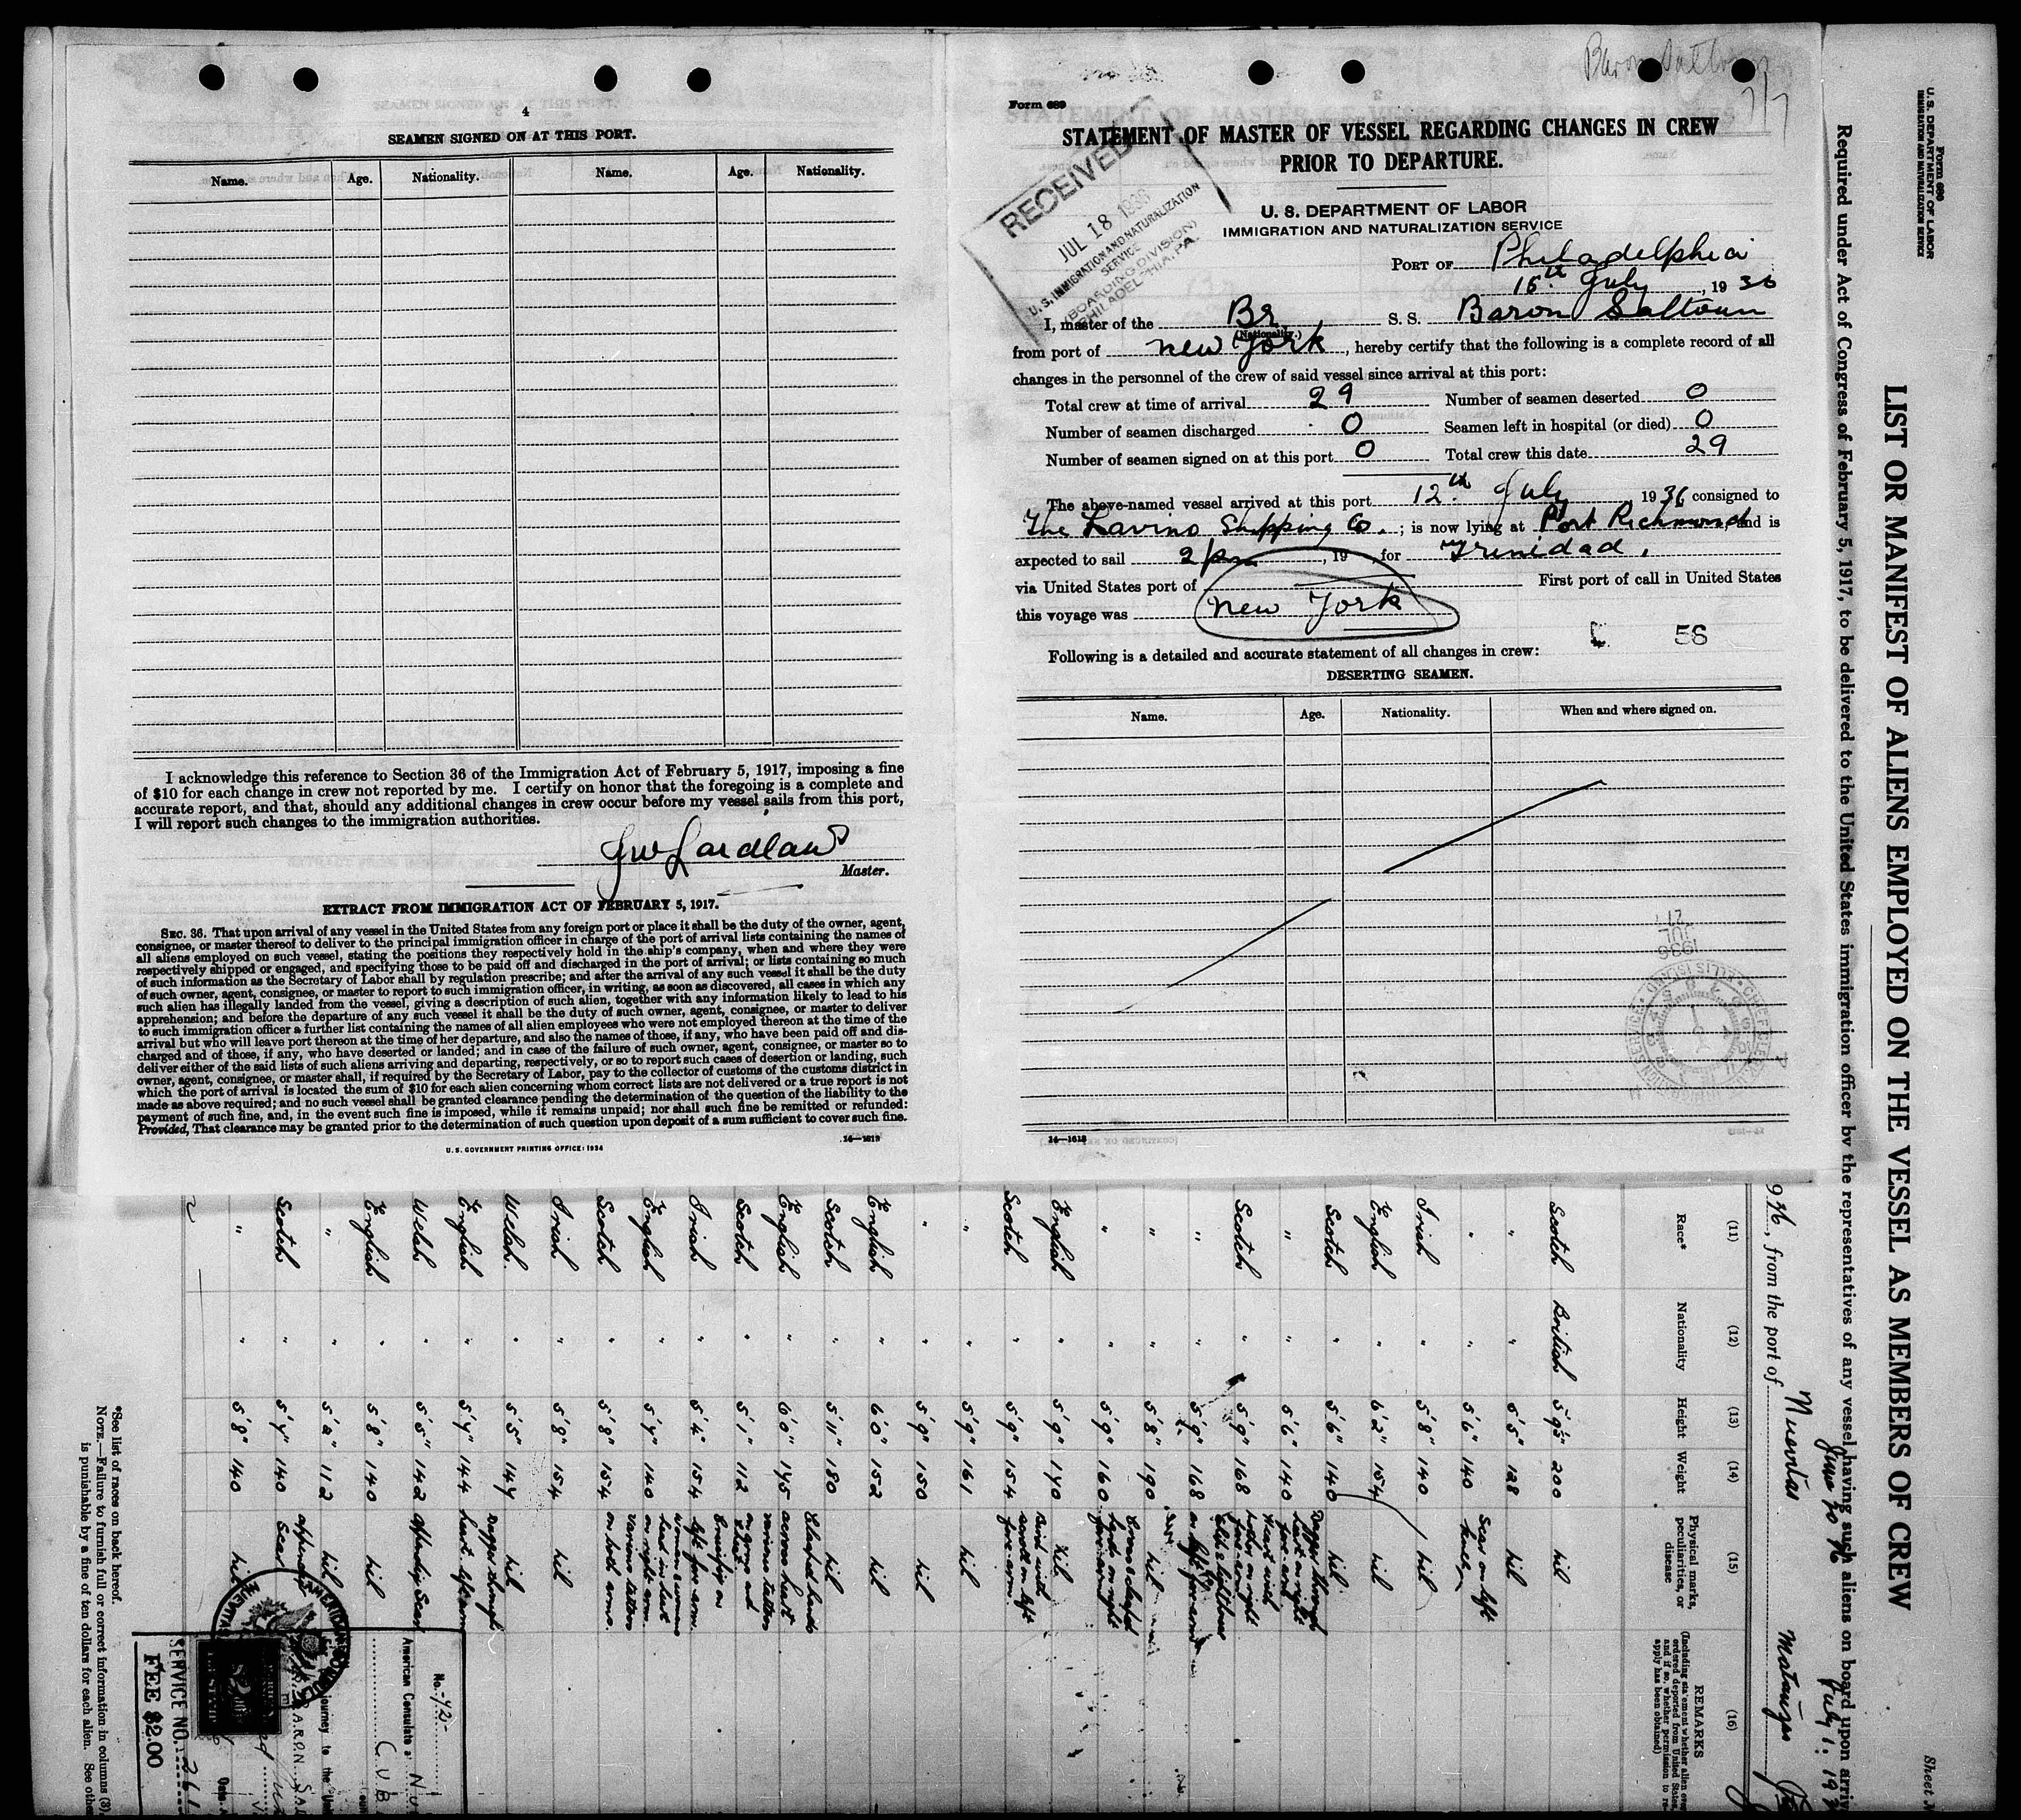 4
SEAMEN SIGNED ON AT THIS PORT.
Name. Age. Nationality. Name. Age. Nationality.
I acknowledge this reference to Section 36 of the Immigration Act of February 5, 1917, imposing a fine
of $10 for each change in crew not reported by me. I certify on honor that the foregoing is a complete and
accurate report, and that, should any additional changes in crew occur before my vessel sails from this port,
I will report such changes to the immigration authorities.
Master.
EXTRACT FROM IMMIGRATION ACT OF FEBRUARY 5, 1917.
SEC. 36. That upon arrival of any vessel in the United States from any foreign port or place it shall be the duty of the owner, agent,
consignee, or master thereof to deliver to the principal immigration officer in charge of the port of arrival lists containing the names of
all aliens employed on such vessel, stating the positions they respectively hold in the ship's company, when and where they were
respectively shipped or engaged, and specifying those to be paid off and discharged in the port of arrival; or lists containing so much
of such information as the Secretary of Labor shall by regulation prescribe; and after the arrival of any such vessel it shall be the duty
of such owner, agent, consignee, or master to report to such immigration officer, in writing, as soon as discovered, all cases in which any
such alien has illegally landed from the vessel, giving a description of such alien, together with any information likely to lead to his
apprehension; and before the departure of any such vessel it shall be the duty of such owner, agent, consignee, or master to deliver
to such immigration officer a further list containing the names of all alien employees who were not employed thereon at the time of the
arrival but who will leave port thereon at the time of her departure, and also the names of those, if any, who have been paid off and dis-
charged and of those, if any, who have deserted or landed; and in case of the failure of such owner, agent, consignee, or master so to
deliver either of the said lists of such aliens arriving and departing, respectively, or so to report such cases of desertion or landing, such
owner, agent, consignee, or master shall, if required by the Secretary of Labor, pay to the collector of customs of the customs district in
which the port of arrival is located the sum of $10 for each alien concerning whom correct lists are not delivered or a true report is not
made as above required; and no such vessel shall be granted clearance pending the determination of the question of the liability to the
payment of such fine, and, in the event such fine is imposed, while it remains unpaid; nor shall such fine be remitted or refunded:
Provided, That clearance may be granted prior to the determination of such question upon deposit of a sum sufficient to cover such fine.
14—1618
U. S. GOVERNMENT PRINTING OFFICE: 1934
Form 689
STATEMENT OF MASTER OF VESSEL REGARDING CHANGES IN CREW
PRIOR TO DEPARTURE.
RECEIVED
JUL 18 1936
U. S. IMMIGRATION AND NATURALIZATION
SERVICE
(BOARDING DIVISION)
PHILADELPHIA, PA.
U. S. DEPARTMENT OF LABOR
IMMIGRATION AND NATURALIZATION SERVICE
PORT OF Philadelphia
July, 1936
I, master of the Br S. S. Baron Saltoun
(Nationality.)
from port of New York, hereby certify that the following is a complete record of all
changes in the personnel of the crew of said vessel since arrival at this port:
Total crew at time of arrival 29 Number of seamen deserted 0
Number of seamen discharged 0 Seamen left in hospital (or died) 0
Number of seamen signed on at this port 0 Total crew this date 29
The above-named vessel arrived at this port 12th July, 1936 consigned to
The Lavino Shipping Co.; is now lying at Port Richmond and is
expected to sail 2 pm, 19 , for Trinidad.
via United States port of First port of call in United States
this voyage was New York
58
Following is a detailed and accurate statement of all changes in crew:
DESERTING SEAMEN.
Name. Age. Nationality. When and where signed on.
1936
JUL
21
14—1618
Form 680
U. S. DEPARTMENT OF LABOR
IMMIGRATION AND NATURALIZATION SERVICE
LIST OR MANIFEST OF ALIENS EMPLOYED ON THE VESSEL AS MEMBERS OF CREW
Required under Act of Congress of February 5, 1917, to be delivered to the United States immigration officer by the representatives of any vessel having such aliens on board upon
from the port of Nuevitas Matanzas
(11) (12) (13) (14) (15) (16)
Race* Nationality Height Weight Physical marks, peculiarities, or disease REMARKS
Scotch British 5'9½" 200 nil
" " 5'5" 128 nil
" " 5'6" 140 Scar on left knee
Irish " 5'8" 140 nil
English " 6'2" 154 nil
Scotch " 5'6" 140 nil
" " 5'6" 140 Dagger through heart on right fore arm
Scotch " 5'9" 168
" " 5'9" 168
" " 5'8" 190 nil
" " 5'9" 160 Cross & clasped hands on right fore arm
English " 5'9" 170 nil
Scotch " 5'9" 154 Bird with scroll on left fore arm
" " 5'9" 161 nil
" " 5'9" 150 nil
English " 6'0" 152 nil
Scotch " 5'11" 180 nil
English " 6'0" 145 Clasped hands across heart various tattoo
Scotch " 5'1" 112
Irish " 5'4" 154
English " 5'7" 140
Scotch " 5'8" 154 various tattoos on both arms
Irish " 5'8" 154 nil
Welsh " 5'5" 147 nil
English " 5'7" 144 Dagger through heart left arm
Welsh " 5'5" 142
English " 5'8" 140 nil
" " 112 nil
Scotch " 5'7" 140 appendix scar
" " 5'8" 140 nil
No. 42
American Consulate
CUBA
SERVICE NO. 261
FEE $2.00
*See list of races on back hereof.
NOTE.—Failure to furnish full or correct information in columns (3),
is punishable by a fine of ten dollars for each alien. See other